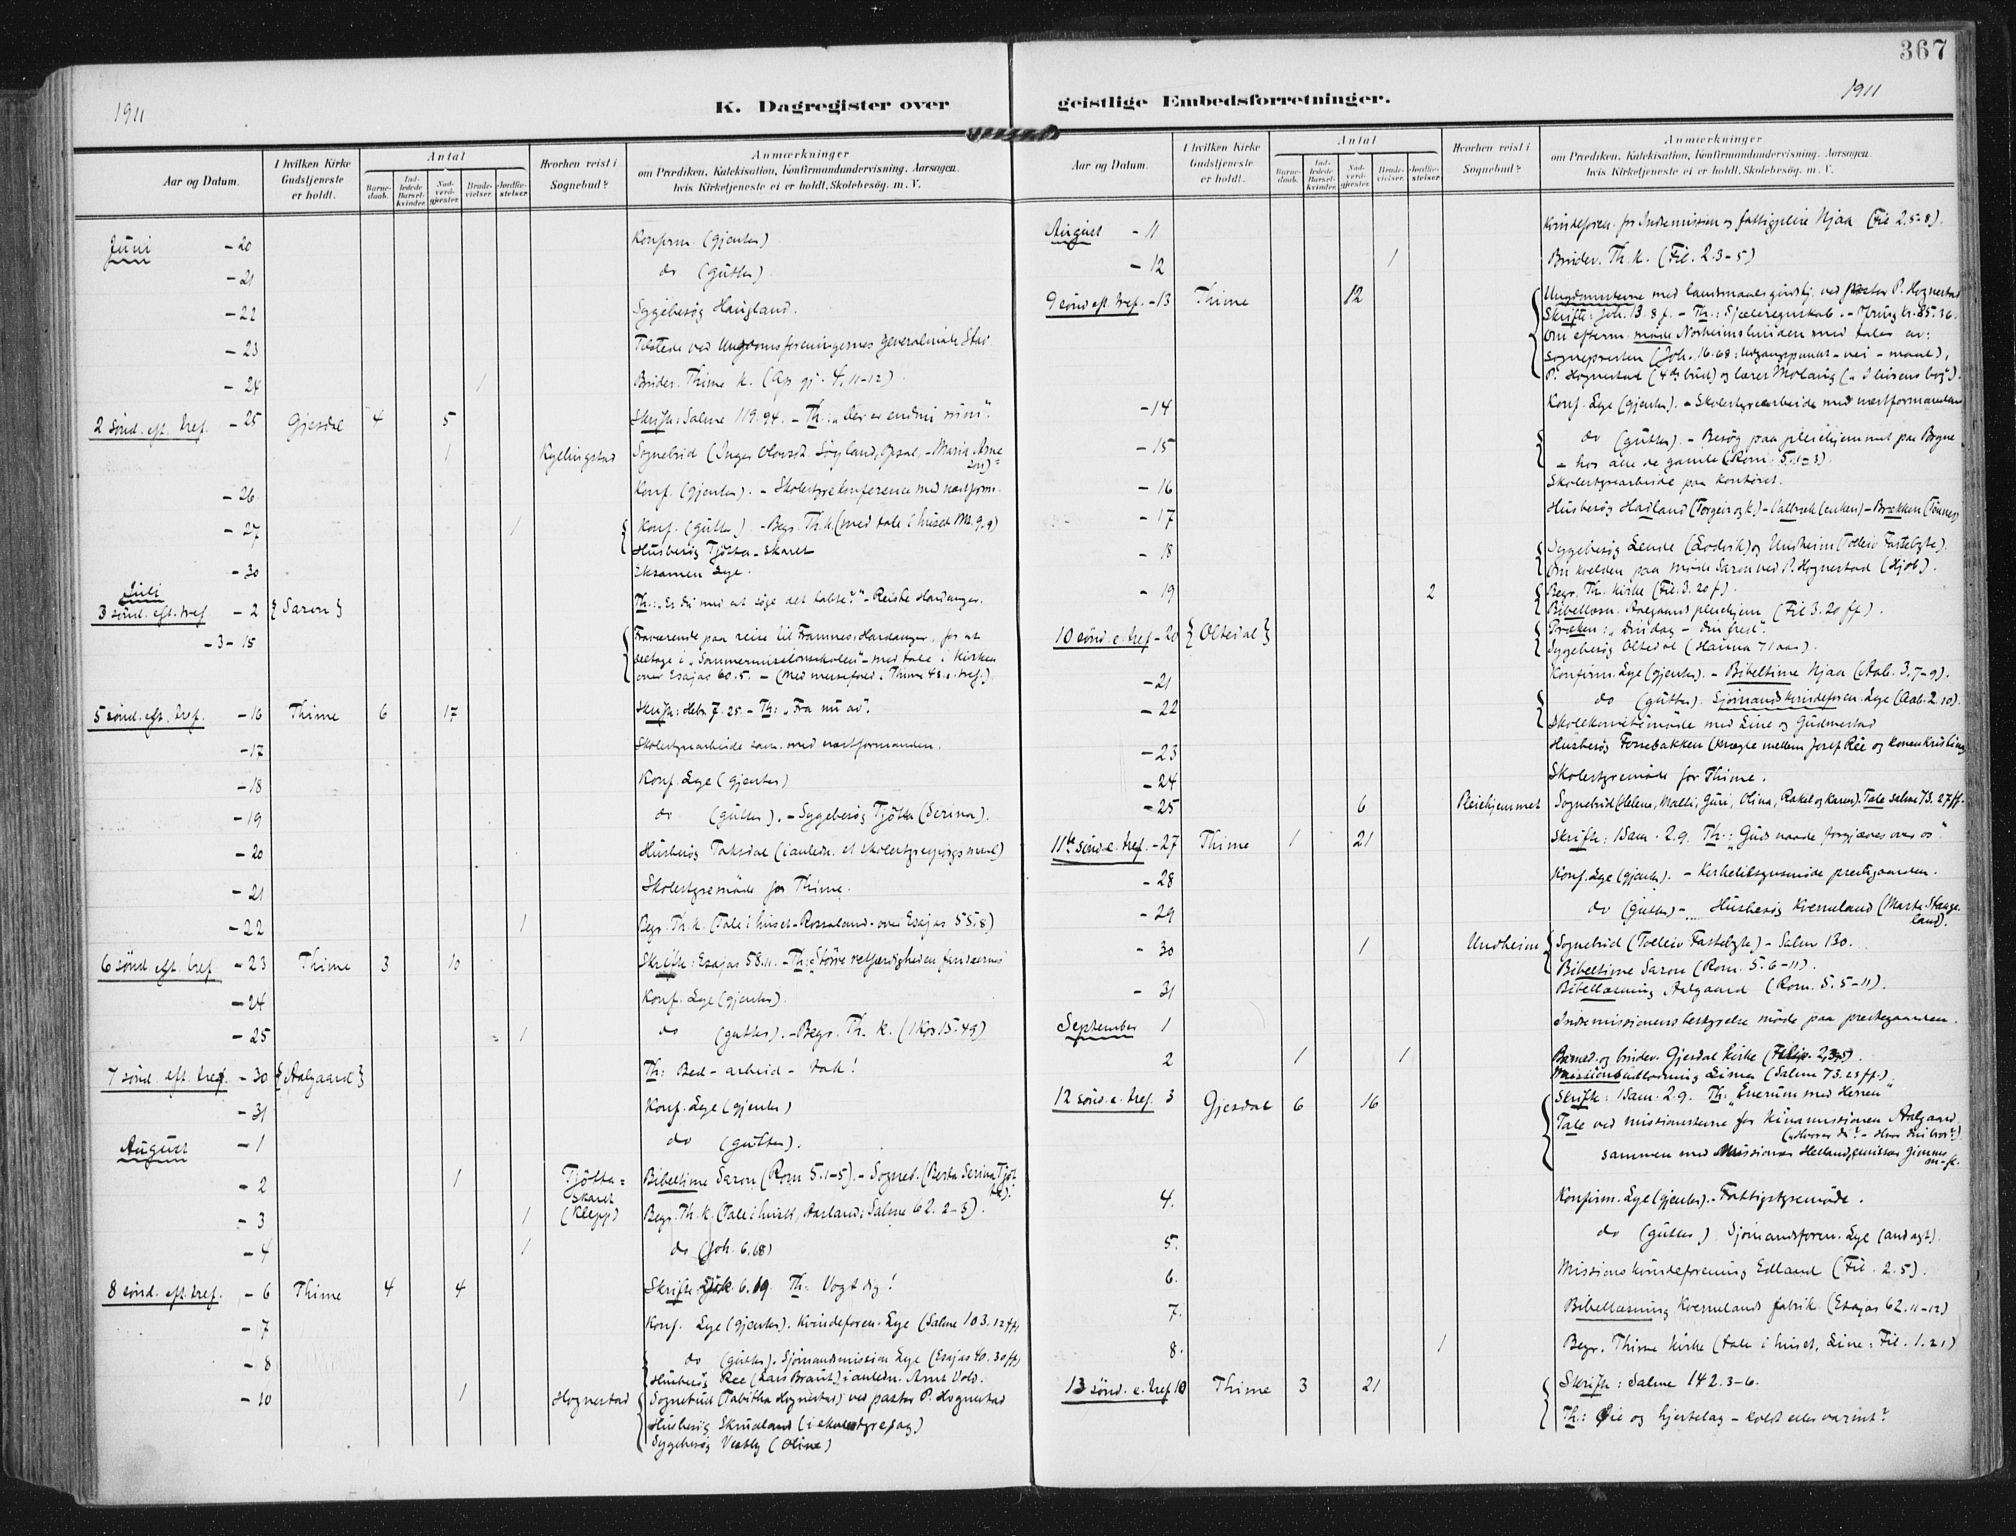 367
1911
K. Dagregister over
geistlige Embedsforretninger.
1911
Aar og Datum.
I hvilken Kirke Gudstjeneste er holdt.
Antal
Barne-daab.
Ind-ledede Barsel-kvinder.
Nad-verd-gjæster.
Brude-vielser.
Jordfæ-stelser.
Hvorhen reist i Sognebud?
Anmærkninger
om Prædiken, Katekisation, Konfirmandundervisning, Aarsagen,
hvis Kirketjeneste ei er holdt, Skolebesøg. m. V.
Juni - 20 Konfirm. (gjenter)
- 21 do (gutter)
- 22 Sygebesøg Haugland.
- 23 Tilstede ved Ungdomsforeningernes generalmøde Stav.
- 24 1 Brudev. Thime k. (Ap. gj. 4. 11-12)
2 sønd. eft. tref. - 25 Gjesdal 4 5 Skrifte: Salme 119. 94. - Th: "Der er endnu rum".
1 Kyllingstad Sognebud
- 26 Konf. (gjenter). - Skolestyrekonference med næstform.
- 27 1 Konf. (gutter). - Begr. Th. k. (med tale i huset M. 9. 9)
Husbesøg Tjøtta-skaret
- 30 Eksamen Lye.
Juli
3 sønd. eft. tref - 2 {Saron} Th.: "Er du med at søge det tabte?" - Reiste Hardanger.
- 3-15 Fraværende paa reise til Framnes, Hardanger, for at
deltage i "Sommermissionsskolen" - med tale i kirken
over Esajas 60. 5.
5 sønd. eft. tref. - 16 Thime 6 17 Skrifte: Hebr. 7. 25 - Th: "Fra nu av".
- 17 Skolestyrearbeide sam. med næstformanden.
- 18 Konf. Lye (gjenter)
- 19 do (gutter). - Sygebesøg Tjøtta (Serina).
- 20 Husbesøg Taksdal
- 21 Skolestyremøde for Thime.
- 22 1 Begr. Th. k. (Tale i huset - Rossaland - over Esajas 55. 8)
6 sønd. eft. tref - 23 Thime 3 10 Skrifte: Esajas 58. 11. - Th: Større retfærdighed en farisæernes
- 24 Konf. Lye (gjenter).
- 25 1 do (gutter). - Begr. Th. k. (1 Kor 15. 49)
7 sønd. eft. tref. - 30 {Aalgaard} Th: Bed - arbeid - tak!
- 31 Konf. Lye (gjenter)
August - 1 do (gutter).
- 2 1 Tjøtta-skaret (Klepp) Bibeltime Saron (Rom 5. 1-5). - Sogneb. (Berta Serina Tjøtta).
- 3 1 Begr. Th. k. (Tale i huset, Aarland: Salme 62. 2-3).
- 4 1 do (Joh. 6. 68)
8 sønd. eft. tref. - 6 Thime 4 4 Skrifte: Luk. 6. 19 Th: Vogt dig!
- 7 Konf. Lye (gjenter). Kvindeforen. Lye (Salme 103. 12 ff)
- 8 do (gutter). Sjømandsmission Lye (Esajas 40. 30 ff)
Husbesøg Ree (Lars Braut) i anledn. Arnt Vold.
- 10 1 Hognestad Sognebud (Tabitha Hognestad) ved pastor P. Hognestad
Husbesøg Skrudland (i skolestyresag)
Sygebesøg Vestly (Oline)
Aar og Datum.
I hvilken Kirke Gudstjeneste er holdt.
Antal
Barne-daab.
Ind-ledede Barsel-kvinder.
Nad-verd-gjæster.
Brude-vielser.
Jordfæ-stelser.
Hvorhen reist i Sognebud?
Anmærkninger
om Prædiken, Katekisation, Konfirmandundervisning, Aarsagen,
hvis Kirketjeneste ei er holdt, Skolebesøg. m. V.
August - 11 Kvindeforen. for Indremission og fattigpleie Njaa (Fil 2. 5-8).
- 12 1 Brudev. Th. k. (Fil. 2. 3-5)
9 sønd eft. tref. - 13 Thime 12 Ungdomsstevne med landsmaalsgudstj. ved pastor P. Hognestad
Skrifte: Joh. 13. 8 f. - Th.: Sjæleregnskab.
Om efterm. møde Norheimslunden med taler av:
Sognepresten (Joh. 16. 68: Udgangspunkt - vei - maal),
P. Hognestad (4de bud) og lærer Molaug
- 14 Konf. Lye (gjenter). - Skolestyrearbeide med næstformanden
- 15 do (gutter). - Besøg paa pleiehjemmet paa Bryne
- hos alle de gamle (Rom. 5. 1-3).
- 16 Skolestyrearbeide paa kontoret.
- 17 Husbesøg Hadland (Torgeir og k.) - Valbræk (enken) - Brækken (Tønnes)
- 18 Sygebesøg Lende (Lodvik) og Undheim (Tolleiv Fastebyte).
Om kvelden paa møde Saron ved P. Hognestad (Hjob).
- 19 2 Begr. Th. kirke (Fil. 3. 20 f).
Bibellæsn. Aalgaards pleiehjem (Fil 3. 20 ff).
10 sønd. e. tref - 20 {Oltedal} Præken: "Din dag - din frest".
Sygebesøg Oltedal (Hanna 71 aar).
- 21 Konfirm. Lye (gjenter). - Bibeltime Njaa (Aab. 3. 7-9).
- 22 do (gutter). Sjømandskvindeforen. Lye (Aab. 2. 10).
Skolekomitemøde med Line og Gudmestad
- 23 Husbesøg Fossebakken (mægle mellem Josef Ree og konen Kristine)
- 24 Skolestyremøde for Thime.
- 25 6 Pleiehjemmet Sognebud (Helena, Malli, Guri, Olina, Rakel og Karen). Tale salme 73. 27 ff.
11te sønd. e. tref. - 27 Thime 1 21 Skrifte: 1 Sam. 2. 9. Th.: "Guds naade forgjæves over os".
- 28 Konf. Lye (gjenter). - Kirketilsynsmøde prestgaarden.
- 29 do (gutter) - Husbesøg Kverneland (Marta Stangeland).
- 30 1 Undheim Sognebud (Tolleiv Fastebyte) - Salm 130.
Bibeltime Saron (Rom. 5. 6-11).
- 31 Bibellæsning Aalgaard (Rom. 5. 5-11).
September 1 Indremissionens bestyrelse møde paa prestegaarden.
2 1 1 Barned. og brudev. Gjesdal kirke
Missionsudlodning Lima (Salme 73. 23 ff.)
12 sønd. e. tref. 3 Gjesdal 6 16 Skrifte: 1 Sam. 2. 9. Th: "Enerum med Herren"
Tale ved missionsstevne for Kinamissionen Aalgaard
("Hvor er du? - Hvor er din bror?")
sammen med Missionær Helland, emissær Gimmes m. fl.
4. Konfirm. Lye (gjenter). - Fattigstyremøde.
5. do (gutter) Sjømandsforen. Lye (andagt).
6. Missionskvindeforening Edland (Fil. 2. 5).
7. Bibellæsning Kvernelands fabrik (Esajas 62. 11-12)
8. 1 Begr. Thime kirke (tale i huset, Line: Fil. 1. 21)
13 sønd. e. tref 10 Thime 3 21 Skrifte: Salme 142. 3-6.
Th: Øie og hjertelag - koldt eller varmt?